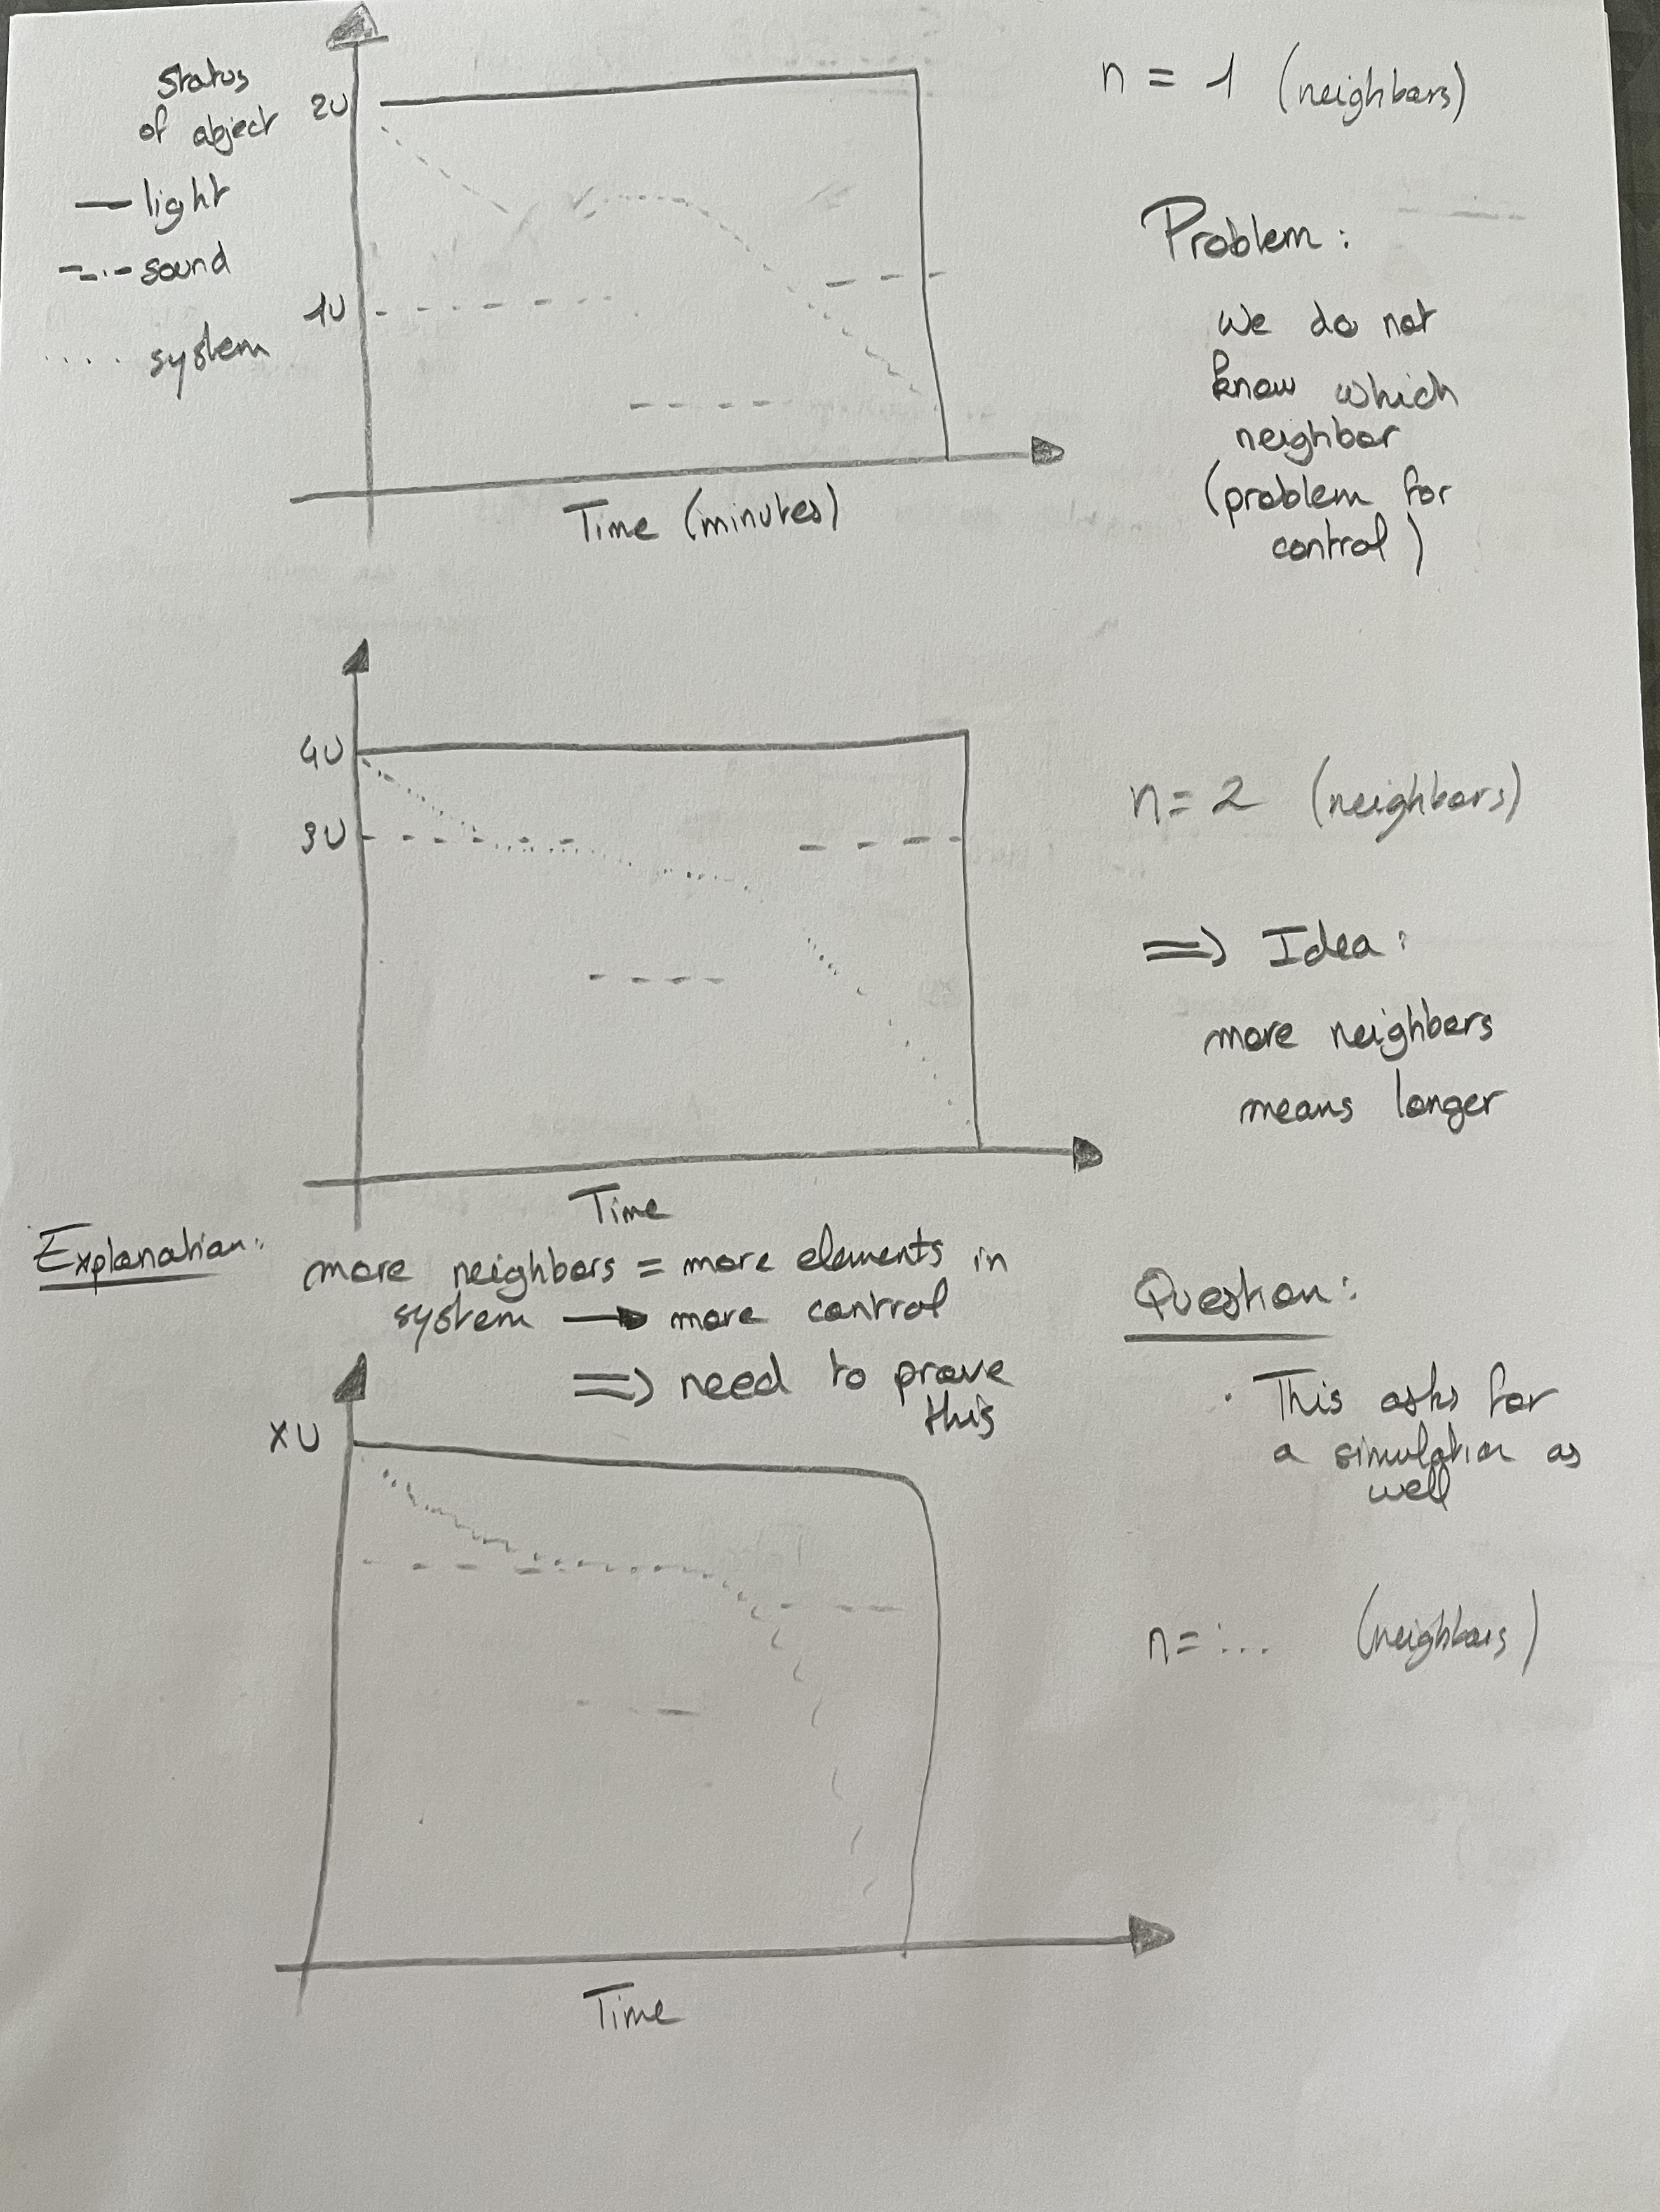 Status
of object
— light
-.- sound
.... system
2U
1U
Time (minutes)
n = 1 (neighbors)
Problem:
We do not
know which
neighbor
(problem for
control)
4U
3U
Time
n = 2 (neighbors)
=> Idea:
more neighbors
means longer
Explanation:
more neighbors = more elements in
system → more control
=> need to prove
this
Question:
· This asks for
a simulation as
well
XU
Time
n = ... (neighbors)